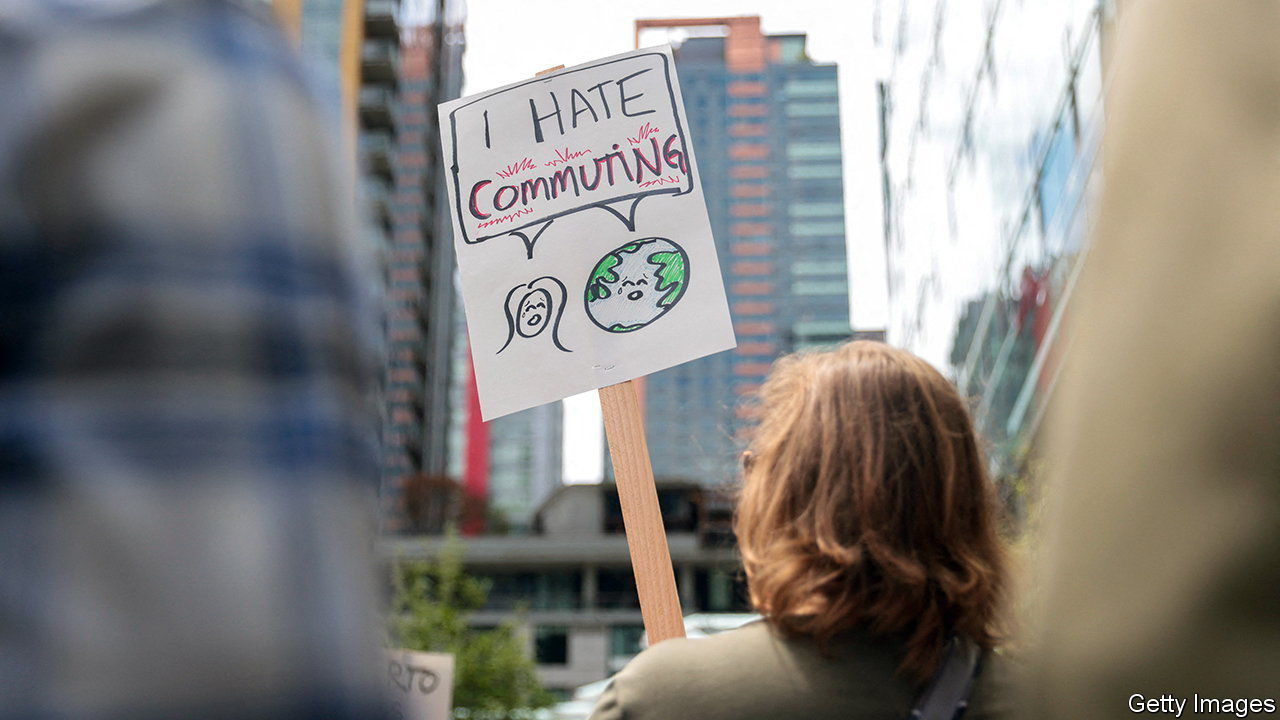 I HATE
COMMUTING
RTO
Getty Images